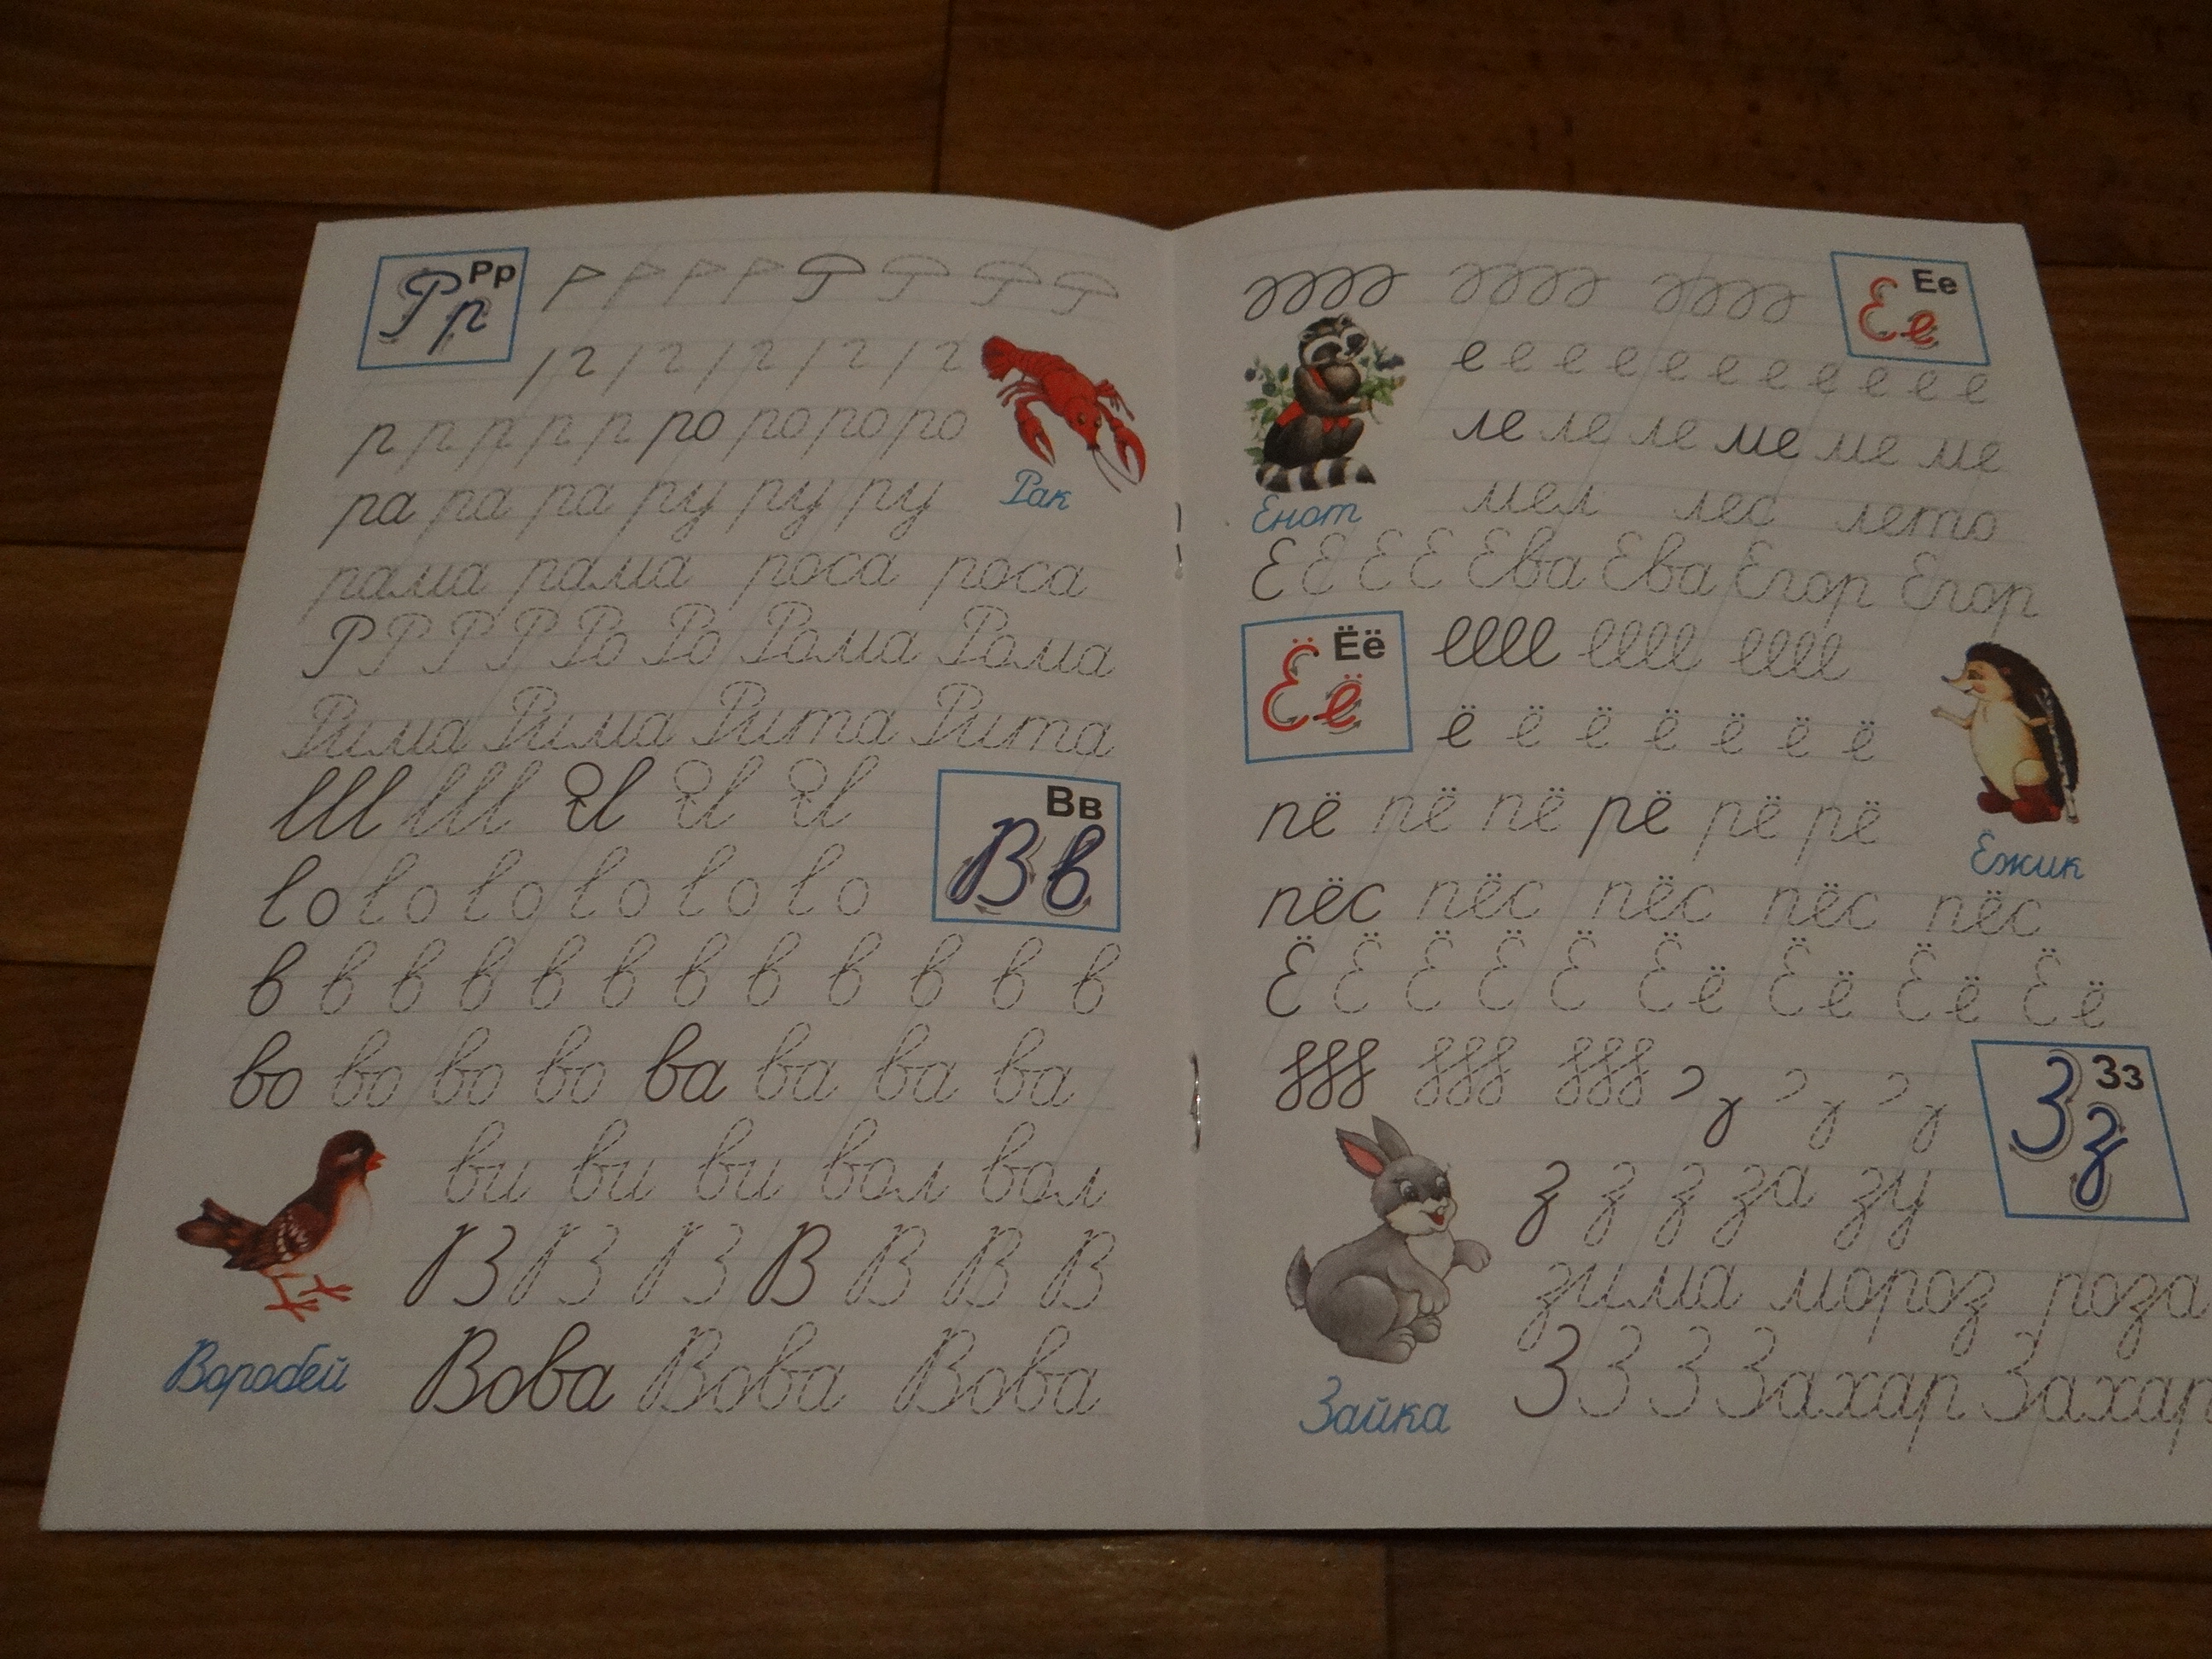 Рр Рр
р р р р р ро ро ро ро
ра ра ра ру ру ру
Рак
рама рама роса роса
Р Р Р Р Ро Ро Рома Рома
Рима Рима Рита Рита
Вв
Вв
в в в в в в в в в в в в
во во во во ва ва ва ва
ви ви ви вол вол
В В В В
Вова Вова Вова
Воробей
Ее
Ее
е е е е е е е е е е е
ле ле ле ме ме ме
мел лес лето
Енот
Е Е Е Е Ева Ева Егор Егор
Ёё
Ёё
ё ё ё ё ё ё ё
пё пё пё рё рё рё
Ёжик
пёс пёс пёс пёс пёс
Ё Ё Ё Ё Ё Ёё Ёё Ёё Ёё
Зз
Зз
з з з за зу
зима мороз роза
З З З Захар Захар
Зайка